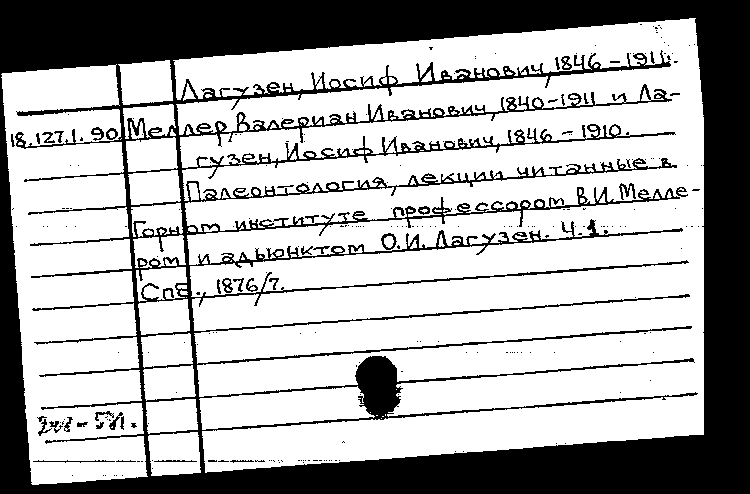 Лагузен, Иосиф Иванович, 1846-1911.
18.127.1.90 Меллер, Валериан Иванович, 1840-1911 и Ла-
гузен, Иосиф Иванович, 1846-1910.
Палеонтология, лекции читанные в
Горном институте профессором В.И. Мелле-
ром и адъюнктом О.И. Лагузен. Ч.1.
Спб., 1876/7.